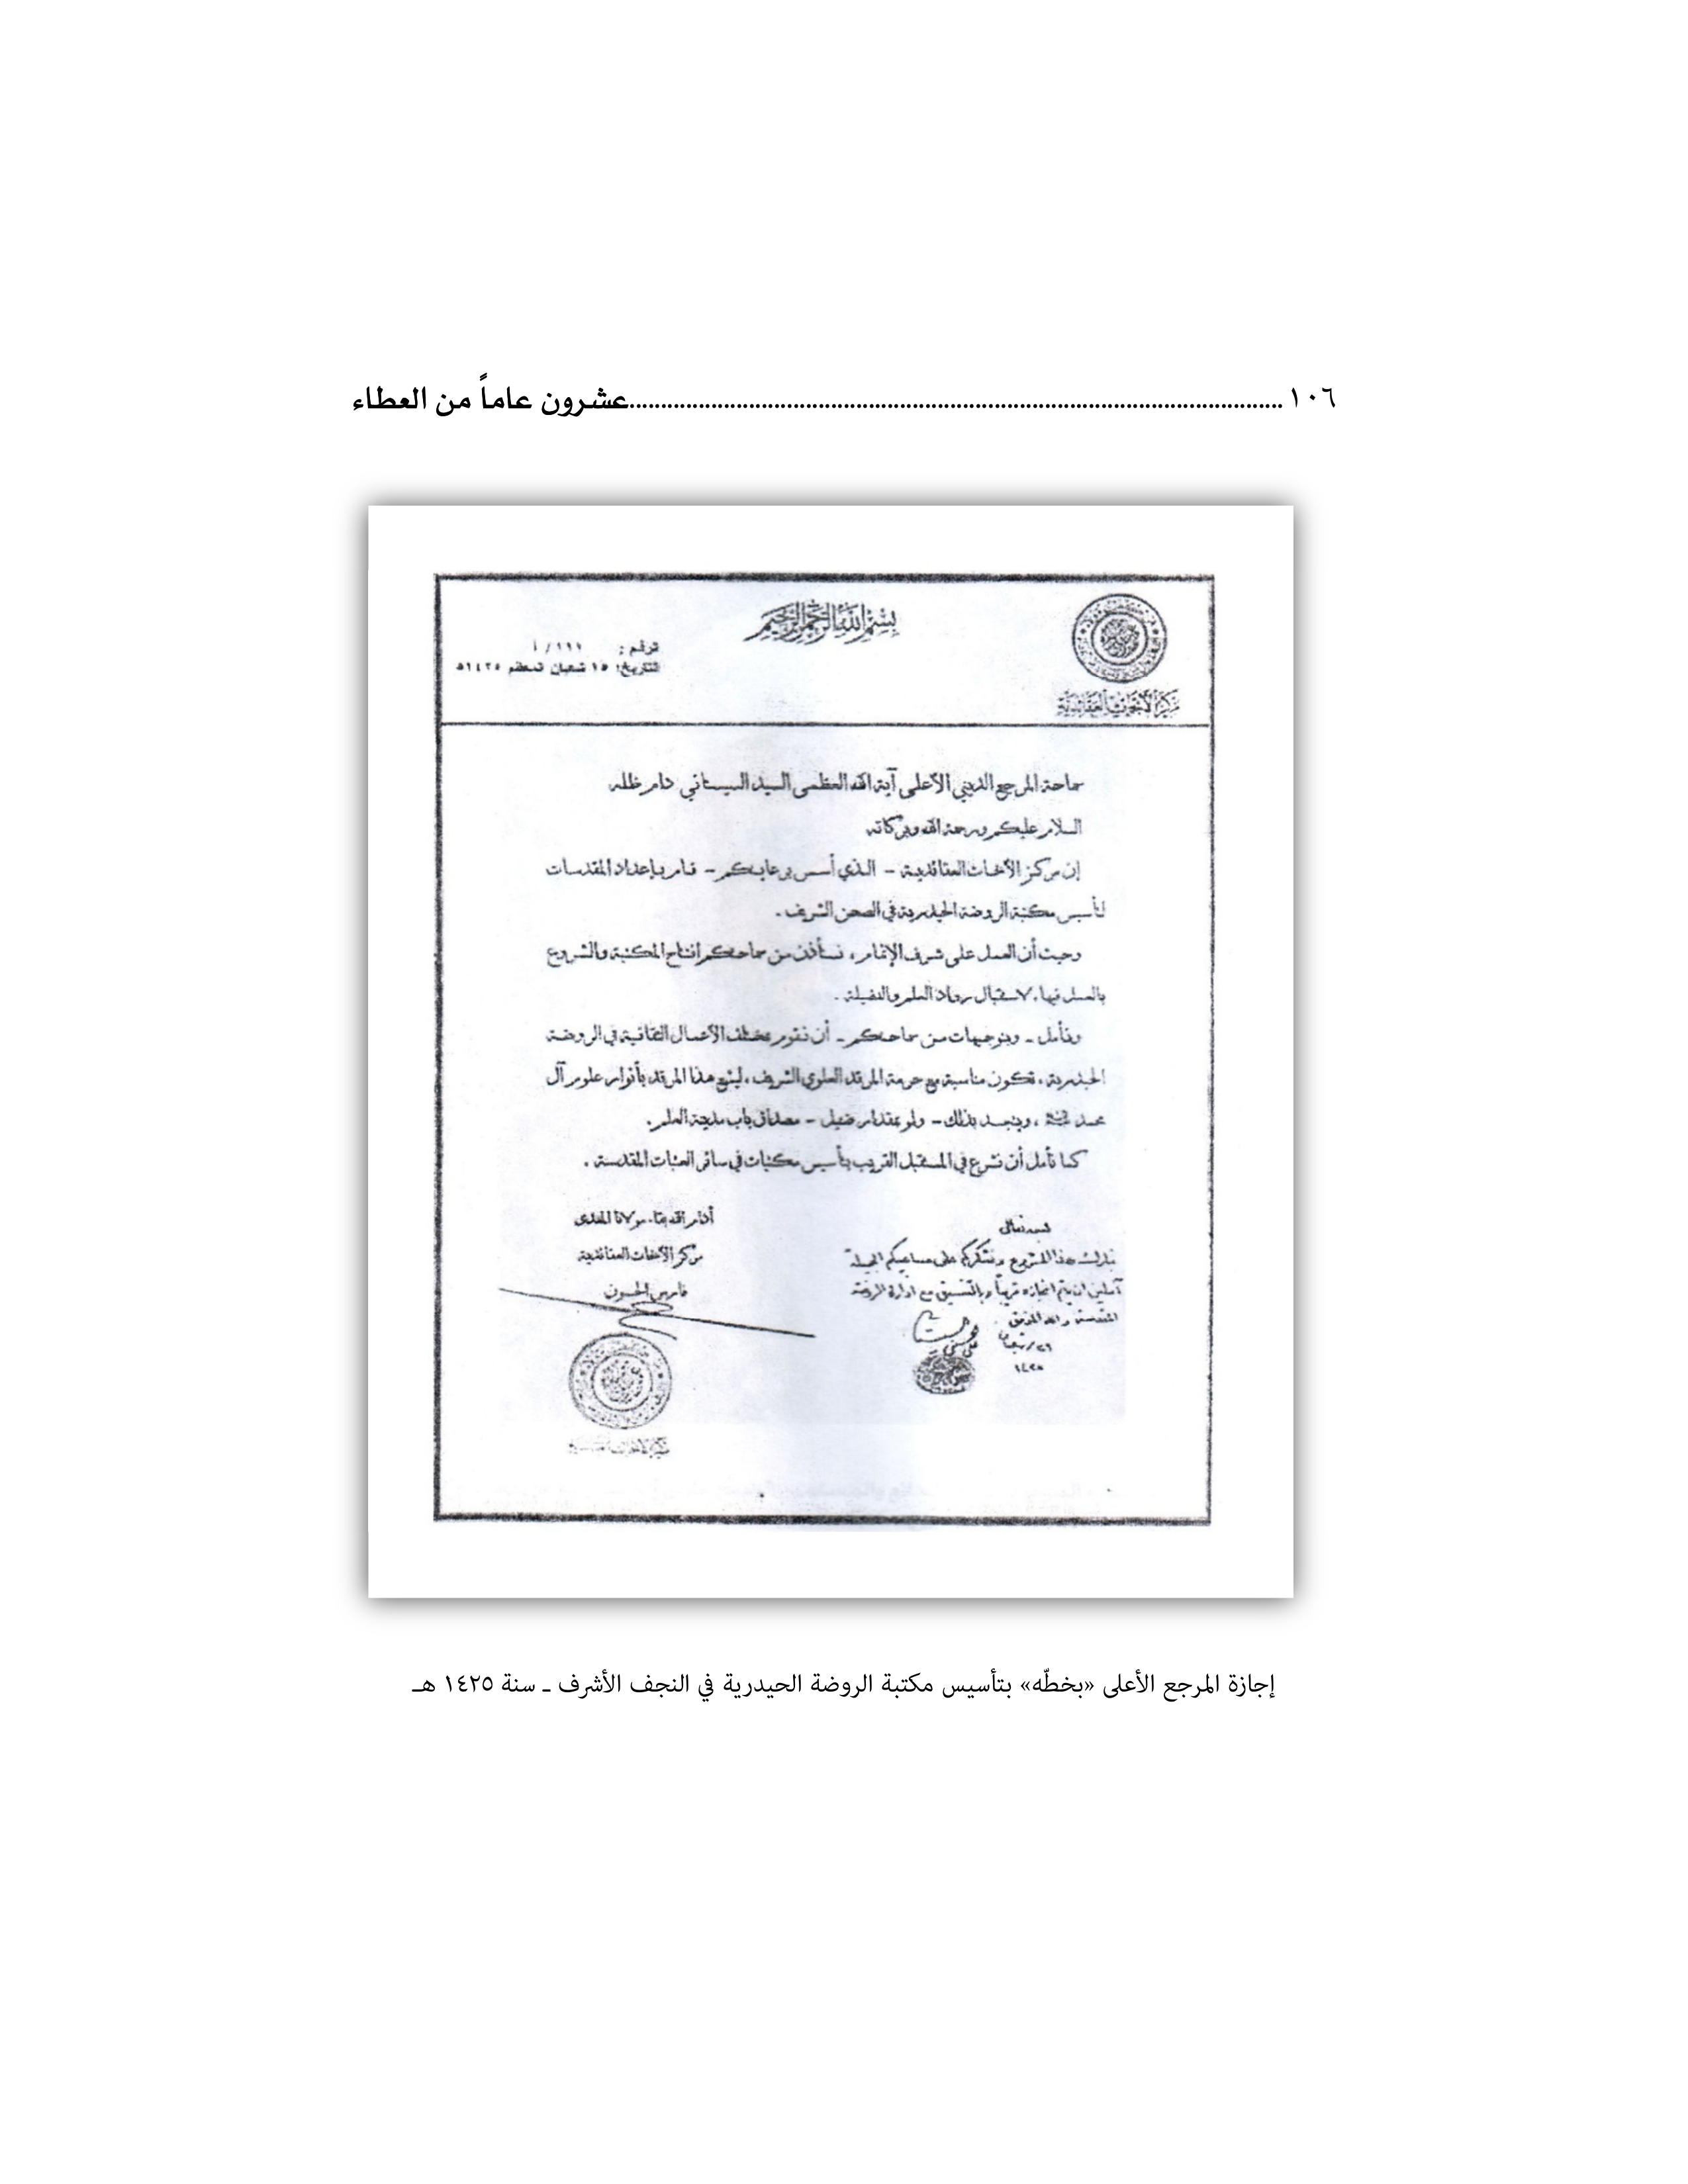 ١٠٦ ........ عشرون عاماً من العطاء
بسم الله الرحمن الرحيم
مركز الأبحاث العقائدية
الرقم :
التاريخ: ١٥ شعبان المعظم ١٤٢٥ه
سماحة المرجع الديني الأعلى آية الله العظمى السيد السيستاني دام ظله
السلام عليكم ورحمة الله وبركاته
إن مركز الأبحاث العقائدية - الذي أسس برعايتكم - قام بإعداد المقدمات
لتأسيس مكتبة الروضة الحيدرية في الصحن الشريف .
وحيث أن العمل على شرف الإتمام ، نستأذن من سماحتكم افتتاح المكتبة والشروع
بالعمل فيها ، لاستقبال رواد العلم والفضيلة .
ونأمل - وبتوجيهات من سماحتكم - أن نقوم بمختلف الأعمال الثقافية في الروضة
الحيدرية ، تكون مناسبة مع حرمة المرقد العلوي الشريف ، ليشع هذا المرقد بأنوار علوم آل
محمد ، ويتجسد بذلك - ولو بمقدار ضئيل - مصداق باب مدينة العلم .
كما نأمل أن نشرع في المستقبل القريب بتأسيس مكتبات في سائر العتبات المقدسة .
أدام الله بقاء مولانا المفدى
مركز الأبحاث العقائدية
فارس الحسون
بسمه تعالى
نبارك هذا المشروع ونشكركم على مساعيكم الجميلة
آملين ان يتم انجازه قريباً وبالتنسيق مع ادارة الروضة
المقدسة والله الموفق
٢٦/شعبان
١٤٢٥
إجازة المرجع الأعلى «بخطّه» بتأسيس مكتبة الروضة الحيدرية في النجف الأشرف ـ سنة ١٤٢٥ هـ